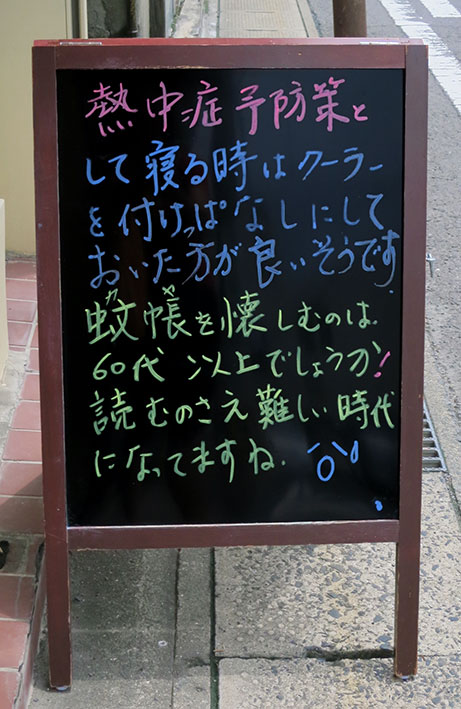 熱中症予防策と
して寝る時はクーラー
を付けっぱなしにして
おいた方が良いそうです
蚊帳を懐しむのは、
60代以上でしょうか!
読むのさえ難しい時代
になってますね.